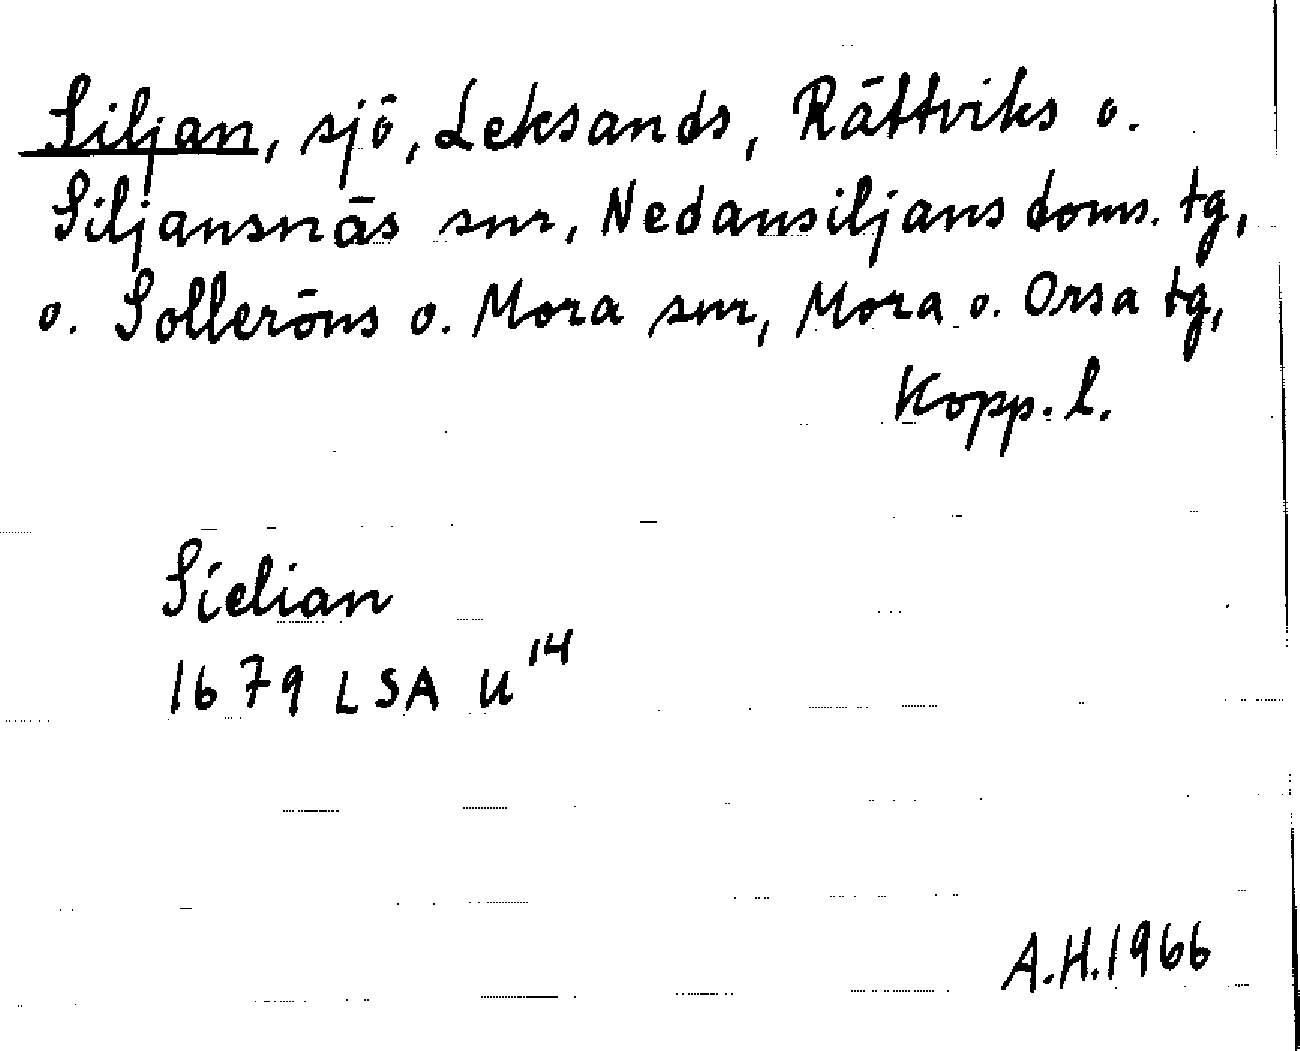 Siljan, sjö, Leksands, Rättviks o.
Siljansnäs snr, Nedansiljans doms. tg,
o. Solleröns o. Mora snr, Mora o. Orsa tg,
Kopp. l.
Sielian
1679 LSA U¹⁴
A.H. 1966